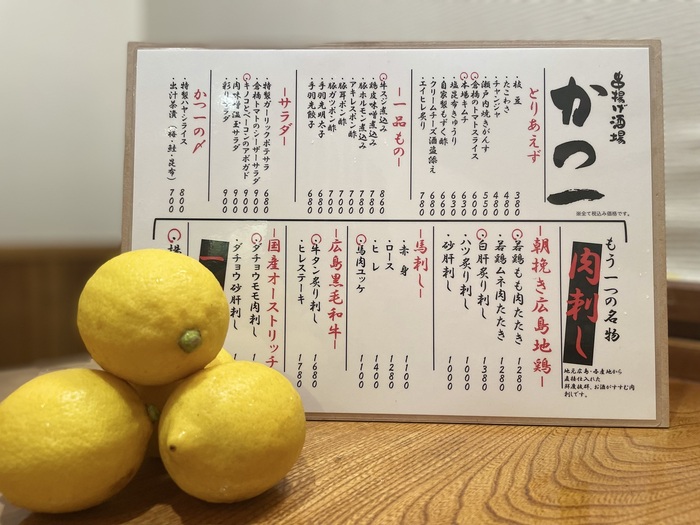 串揚げ酒場
かつ一
※全て税込み価格です。
とりあえず
・枝豆 380
・たこわさ 480
・チャンジャ 480
・瀬戸内焼きがんす 550
・倉橋のトマトスライス 500
・本場キムチ 630
・塩昆布きゅうり 630
・自家製もずく酢 660
・クリームチーズ酒盗添え 680
・エイヒレ炙り 780
ー一品ものー
・牛スジ煮込み 860
・鶏皮味噌煮込み 780
・豚ホルモン煮込み 780
・アキレスポン酢 700
・豚耳ポン酢 700
・豚ガツポン酢 700
・手羽先明太子 680
・手羽先餃子 680
ーサラダー
・特製ガーリックポテサラ 680
・倉橋トマトのシーザーサラダ 900
・キノコとベーコンのアボガド 900
・肉味噌温玉サラダ 900
・彩りサラダ 900
かつ一の〆
・特製ハヤシライス 800
・出汁茶漬(梅・鮭・昆布) 700
もう一つの名物
肉刺し
地元広島・各産地から
直接仕入れた
鮮度抜群、お酒がすすむ肉
刺しです。
ー朝挽き広島地鶏ー
・若鶏もも肉たたき 1280
・若鶏ムネ肉たたき 1280
・白肝炙り刺し 1380
・ハツ炙り刺し 1000
・砂肝刺し 1000
ー馬刺しー
・赤身 1100
・ロース 1280
・ヒレ 1400
・馬肉ユッケ 1100
ー広島黒毛和牛ー
・牛タン炙り刺し 1680
・ヒレステーキ 1780
ー国産オーストリッチ
・ダチョウモモ肉刺し
・ダチョウ砂肝刺し
一